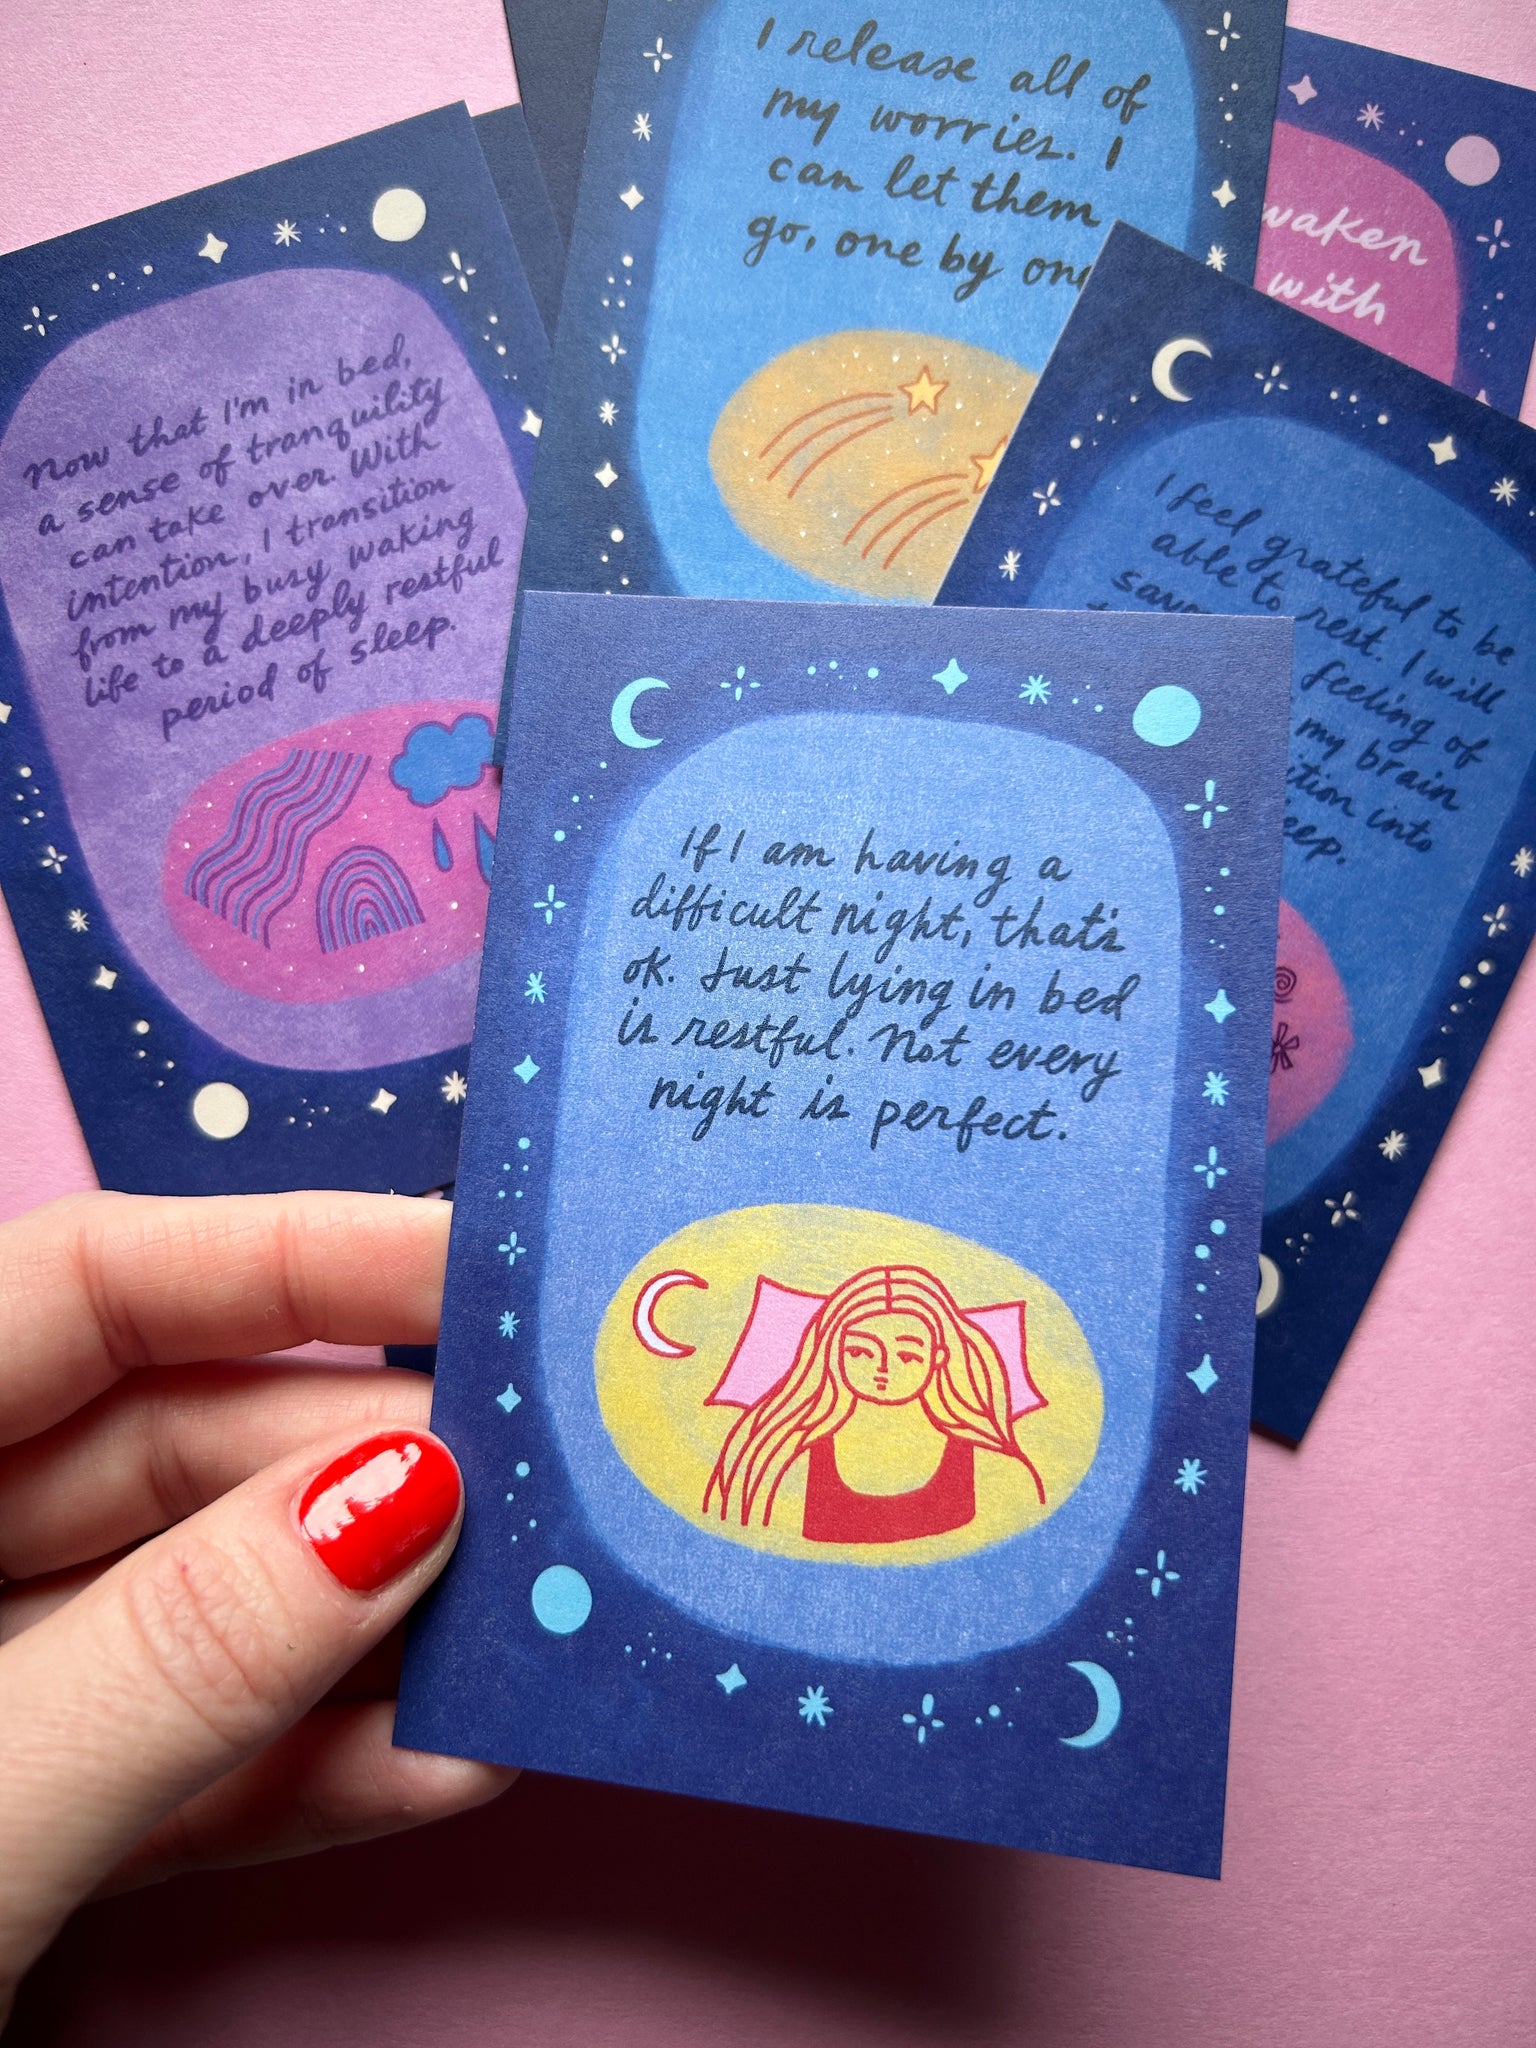 I release all of
my worries. I
can let them
go, one by
waken
with
Now that I'm in bed,
a sense of tranquility
can take over. With
intention, I transition
from my busy waking
life to a deeply restful
period of sleep.
I feel grateful to be
able to rest. I will
feeling of
my brain
into
If I am having a
difficult night, that's
ok. Just lying in bed
is restful. Not every
night is perfect.